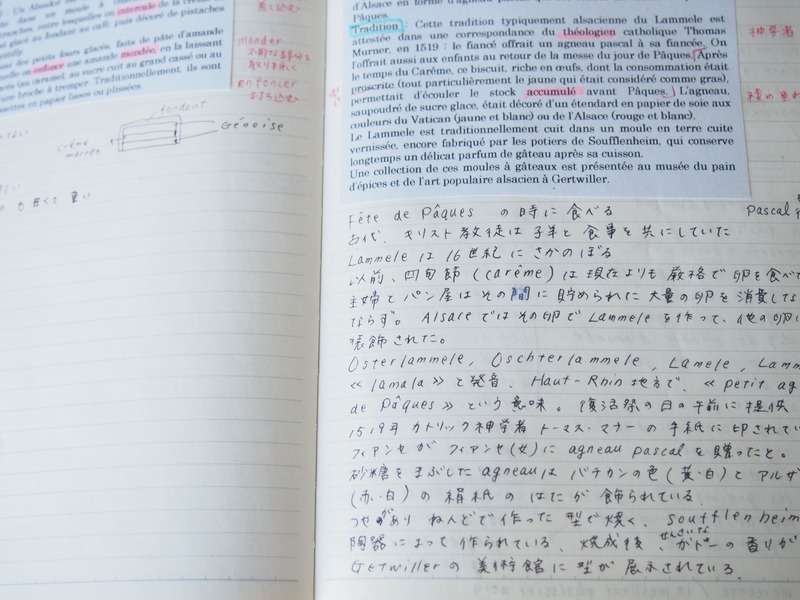 intercale
glacé au fondant au café, puis décoré de pistaches
des petits fours glacés, faits de pâte d'amande
enfonce une amande mondée, en la laissant
(au caramel, au sucre cuit au grand cassé ou au
une broche à tremper. Traditionnellement, ils sont
en papiers lisses ou plissées
monder
enfoncer
fondant
Génoise
crème
marron
d'Alsace en forme d'agneau
Pâques.
Tradition : Cette tradition typiquement alsacienne du Lammele est
attestée dans une correspondance du théologien catholique Thomas
Murner, en 1519 : le fiancé offrait un agneau pascal à sa fiancée. On
l'offrait aussi aux enfants au retour de la messe du jour de Pâques. Après
le temps du Carême, ce biscuit, riche en œufs, dont la consommation était
proscrite (tout particulièrement le jaune qui était considéré comme gras),
permettait d'écouler le stock accumulé avant Pâques. L'agneau,
saupoudré de sucre glace, était décoré d'un étendard en papier de soie aux
couleurs du Vatican (jaune et blanc) ou de l'Alsace (rouge et blanc).
Le Lammele est traditionnellement cuit dans un moule en terre cuite
vernissée, encore fabriqué par les potiers de Soufflenheim, qui conserve
longtemps un délicat parfum de gâteau après sa cuisson.
Une collection de ces moules à gâteaux est présentée au musée du pain
d'épices et de l'art populaire alsacien à Gertwiller.
神学者
Fête de Pâques の時に食べる
Pascal
古代、キリスト教徒は子羊と食事を共にしていた
Lammele は 16世紀にさかのぼる
以前、四旬節 (carême) は現在よりも厳格で卵を食べ
主婦とパン屋はその間に貯められた大量の卵を消費しな
ならず。Alsace ではその卵で Lammele を作って、他の卵
装飾された。
Osterlammele, Oschterlammele, Lamele, Lamm
«lamala» と発音、Haut-Rhin 地方で、«petit ag
de Pâques» という意味。復活祭の日の午前に提供
1519年カトリック神学者 トーマス・マナーの手紙に印されてい
フィアンセがフィアンセ(女)に agneau pascal を贈ったと。
砂糖をまぶした agneau は バチカンの色(黄・白)と アルザ
(赤・白)の絹紙のはたが飾られている
つやがあり ねんどで作った型で焼く、Soufflenheim
陶器によって作られている、焼成後、せんさいな ガトーの香りが
Getwiller の美術館に型が展示されている。